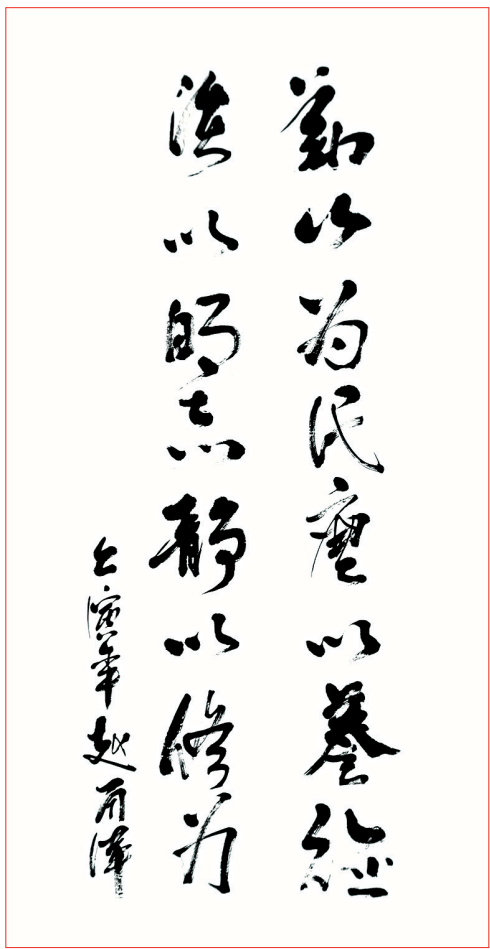 勤以为民廉以養德
淡以明志静以修为
壬寅年赵